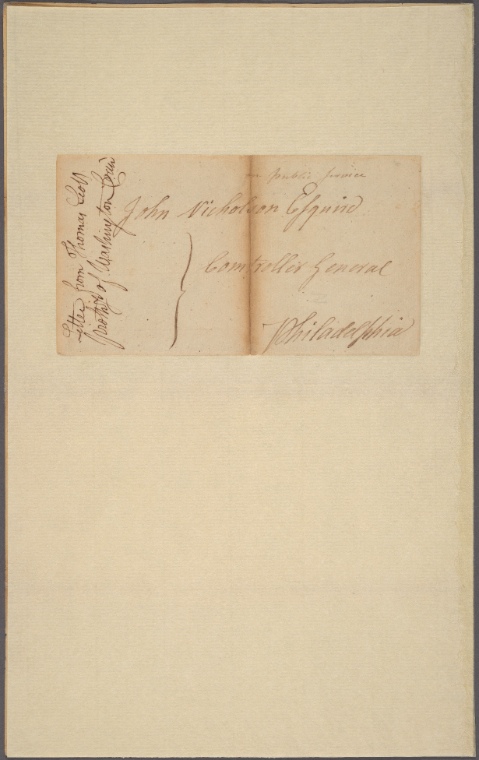 on public service
John Nicholson Esquire
Comtroller General
Philadelphia
Letter from Thomas Scott
prothy of Washington